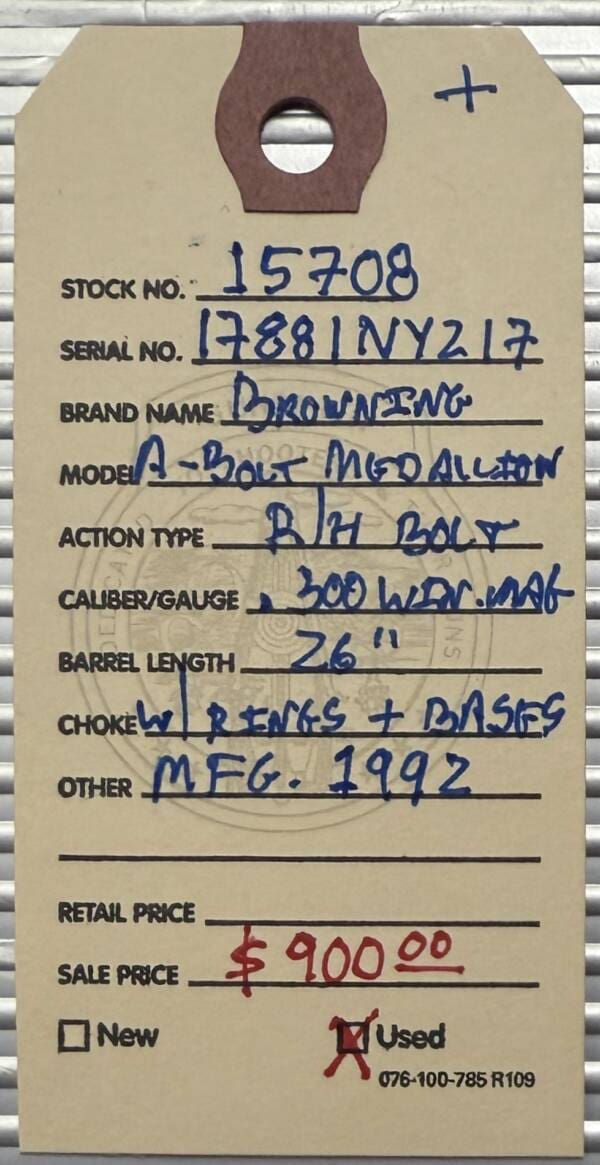 +
STOCK NO. 15708
SERIAL NO. 17881NY217
BRAND NAME BROWNING
MODEL A-BOLT MEDALLION
ACTION TYPE R/H BOLT
CALIBER/GAUGE .300 WIN.MAG
BARREL LENGTH 26"
CHOKE W/ RINGS + BASES
OTHER MFG. 1992
RETAIL PRICE
SALE PRICE $900.00
New Used
076-100-785 R109